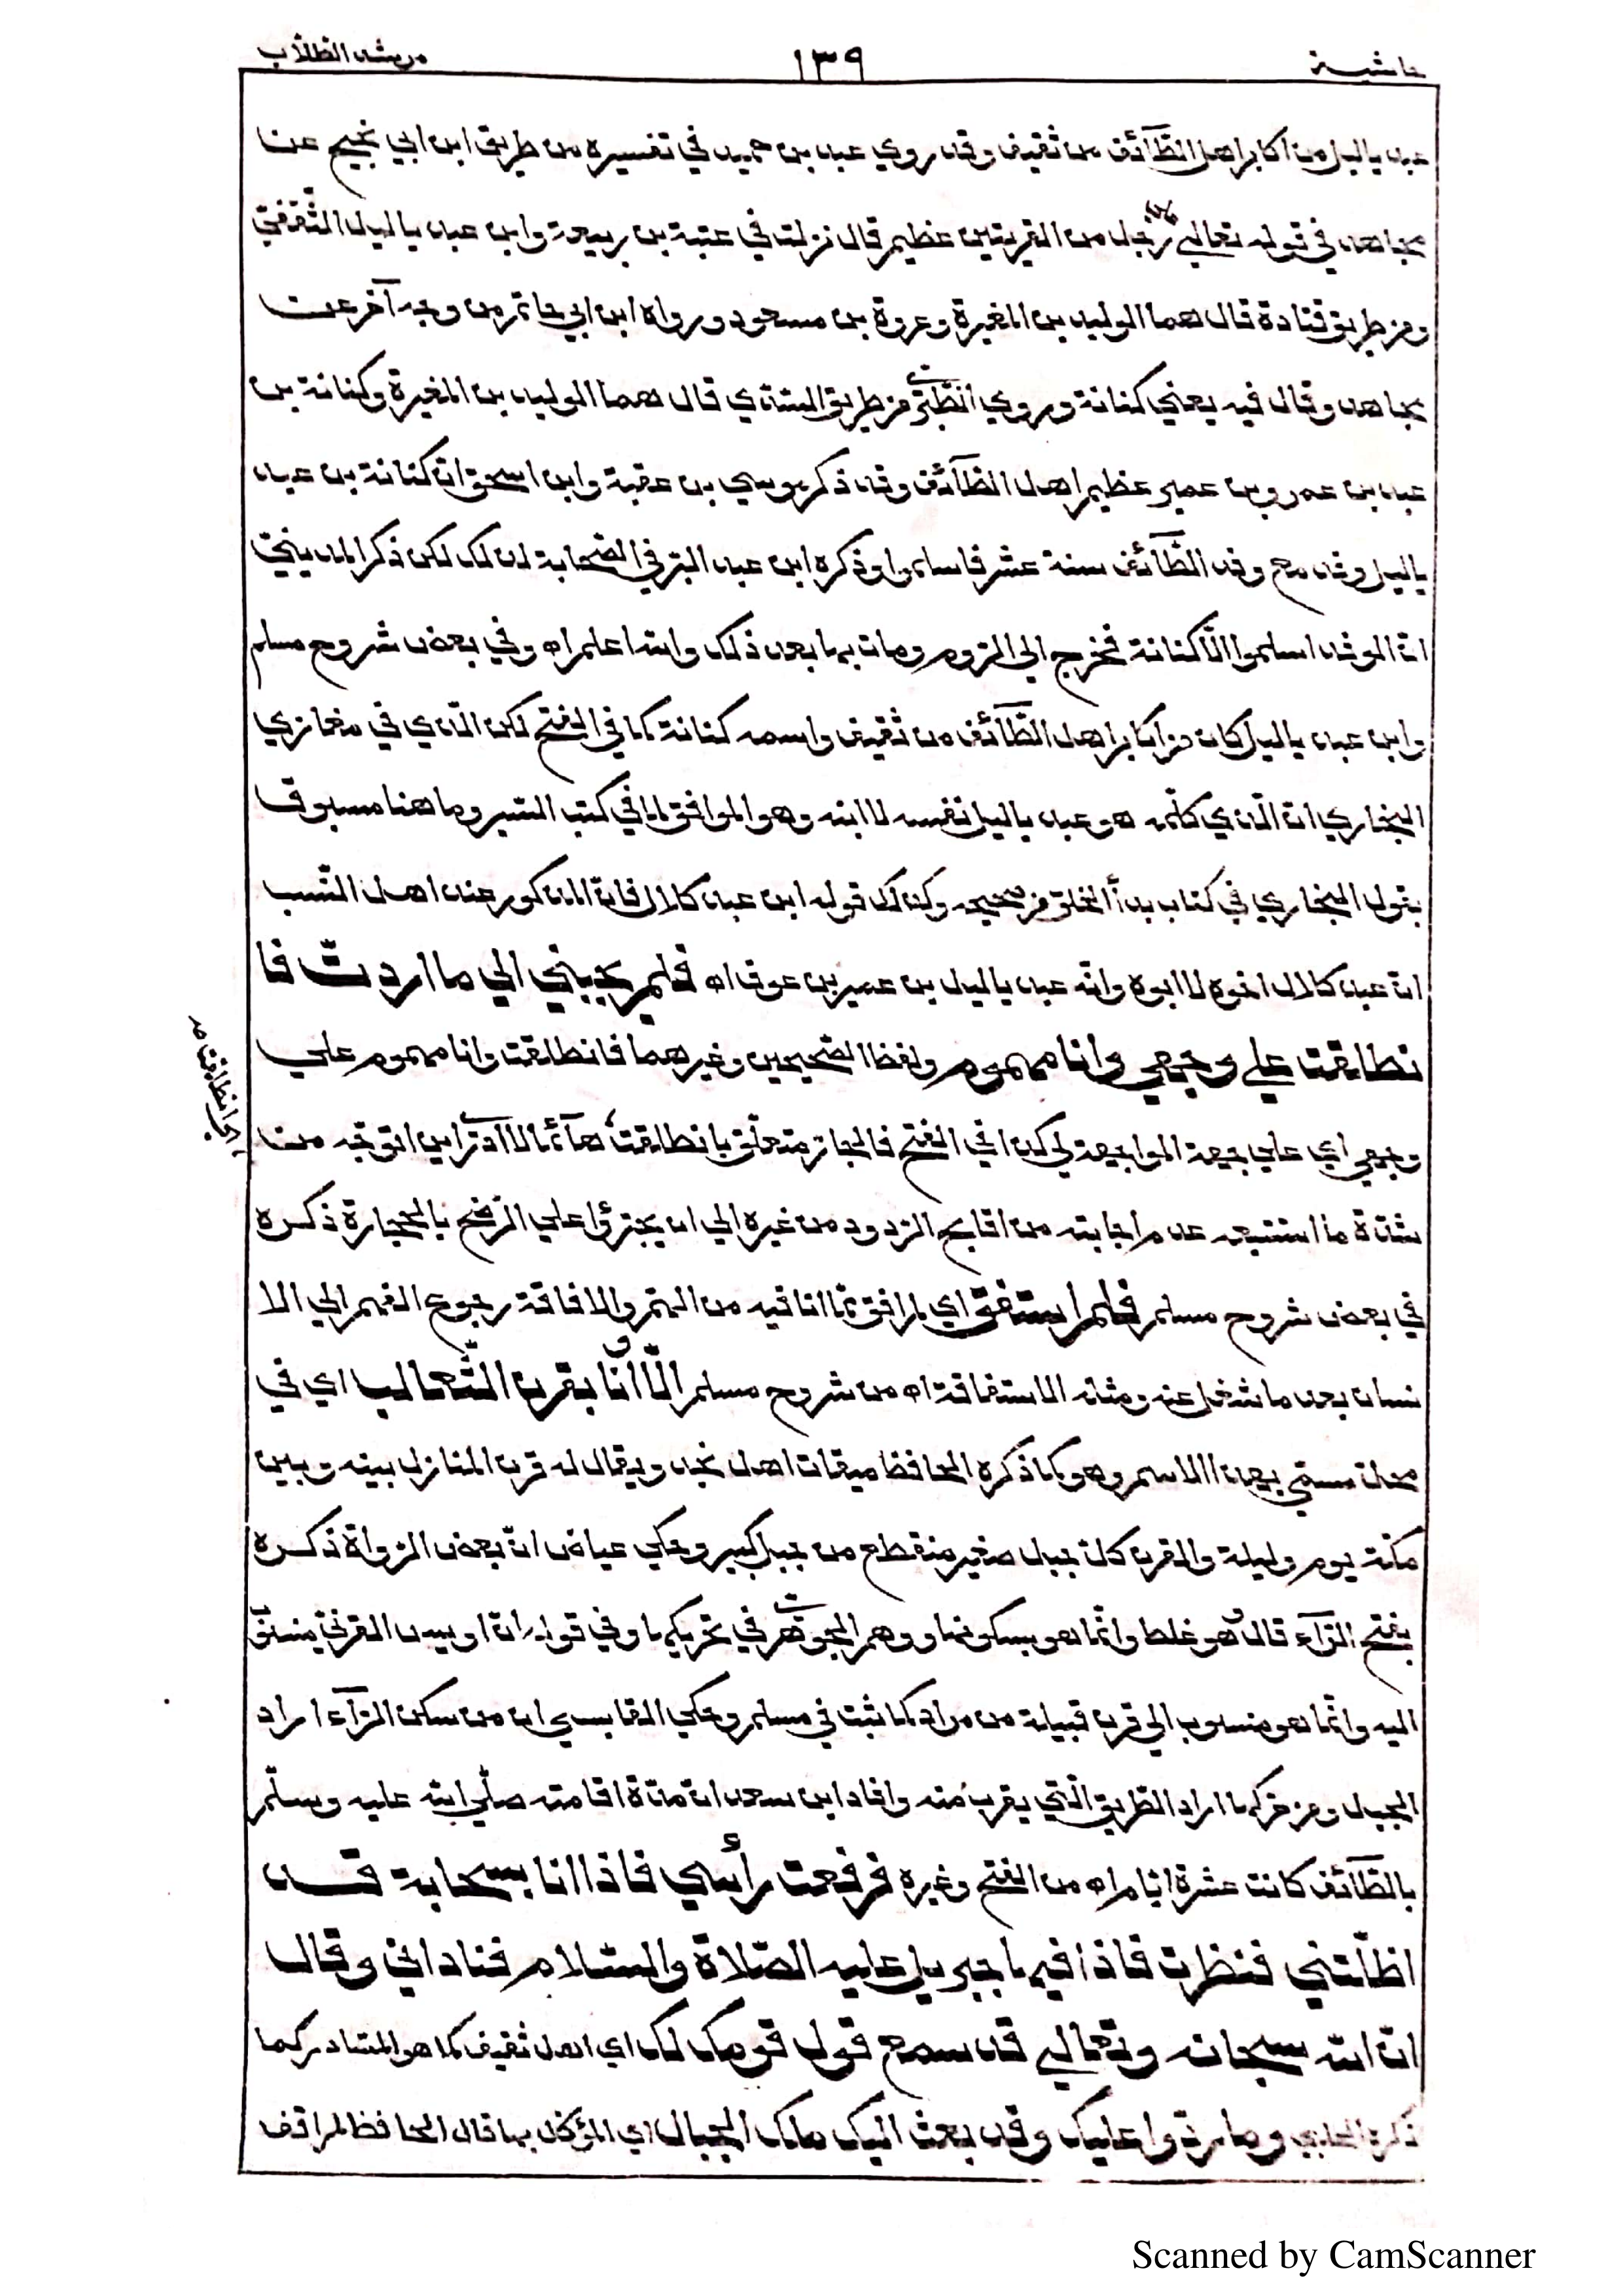 حاشية ١٣٩ مرشد الطلاب
عبد ياليل من اكابر اهل الطآئف من ثقيف وقد روي عبد بن حميد في تفسيره من طريق ابن ابي نجيح عن
مجاهد في قوله تعالى على رجل من القريتين عظيم قال نزلت في عتبة بن ربيعة وابن عبد ياليل الثقفي
ومن طريق قتادة قال هما الوليد بن المغيرة وعروة بن مسعود ورواه ابن ابي حاتم من وجه آخر عن
مجاهد وقال فيه يعني كنانة وروي الطبري من طريق السدي قال هما الوليد بن المغيرة وكنانة بن
عبد بن عمرو بن عمير عظيم اهل الطآئف وقد ذكر موسي بن عقبة وابن اسحق ان كنانة بن عبد
ياليل وفد مع وفد الطآئف سنة عشر فاسلموا وذكره ابن عبد البر في الصحابة لذلك لكن ذكر المديني
ان الوفد اسلموا الا كنانة فخرج الي الروم ومات بها بعد ذلك والله اعلم اه وفي بعض شروح مسلم
وابن عبد ياليل كان من اكابر اهل الطآئف من ثقيف واسمه كنانة كما في الفتح لكن الذي في مغازي
البخاري ان الذي كلمه هو عبد ياليل نفسه لا ابنه وهو الموافق لما في كتب السير وما هنا مسبوق
بقول البخاري في كتاب بدأ الخلق من صحيحه وكذلك قوله ابن عبد كلال فان المذكور عند اهل النسب
ان عبد كلال اخوه لا ابوه وانه عبد ياليل بن عمير بن عوف اه فلم يجبني الي ما اردت فا
نطلقت علي وجهي وانا مهموم ولفظ الصحيحين وغيرهما فانطلقت وانا مهموم علي
وجهي اي علي جهة المواجهة لي كذا في الفتح فالجار متعلق بانطلقت هآئما لا ادري اين اتوجه من
شدة ما استتبعه عدم اجابته من اقابح الردود من غيره الي ان يجترؤا علي الرضخ بالحجارة ذكره
في بعض شروح مسلم فلم استفق اي لم افق مما انا فيه من الهم والافاقة رجوع الفهم الي الا
نسان بعد ما شغل عنه ومثله الاستفاقة اه من شروح مسلم الا وانا بقرن الثعالب اي في
محل مسمي بهذا الاسم وهو كما ذكره الحافظ ميقات اهل نجد ويقال له قرن المنازل بينه وبين
مكة يوم وليلة والقرن كل جبل صغير منقطع من جبل كبير وحكي عياض ان بعض الرواة ذكره
بفتح الرآء قال هو غلط وانما هو بسكونها ووهم الجوهري في تحريكها وفي قوله ان اويس القرني منسوب
اليه وانما هو منسوب الي قرن قبيلة من مراد كما ثبت في مسلم وحكي القابسي ان من سكن الرآء اراد
الجبل ومن حركها اراد الطريق التي يقرب منه وافاد ابن سعد ان مدة اقامته صلي الله عليه وسلم
بالطآئف كانت عشرة ايام اه من الفتح وغيره فرفعت رأسي فاذا انا بسحابة قد
اظلتني فنظرت فاذا فيها جبريل عليه الصلاة والسلام فناداني وقال
ان الله سبحانه وتعالي قد سمع قول قومك لك اي اهل ثقيف كما هو المتبادر كما
ذكره الحلبي وما ردوا عليك وقد بعث اليك ملك الجبال اي المؤكل بها قال الحافظ لم اقف
Scanned by CamScanner